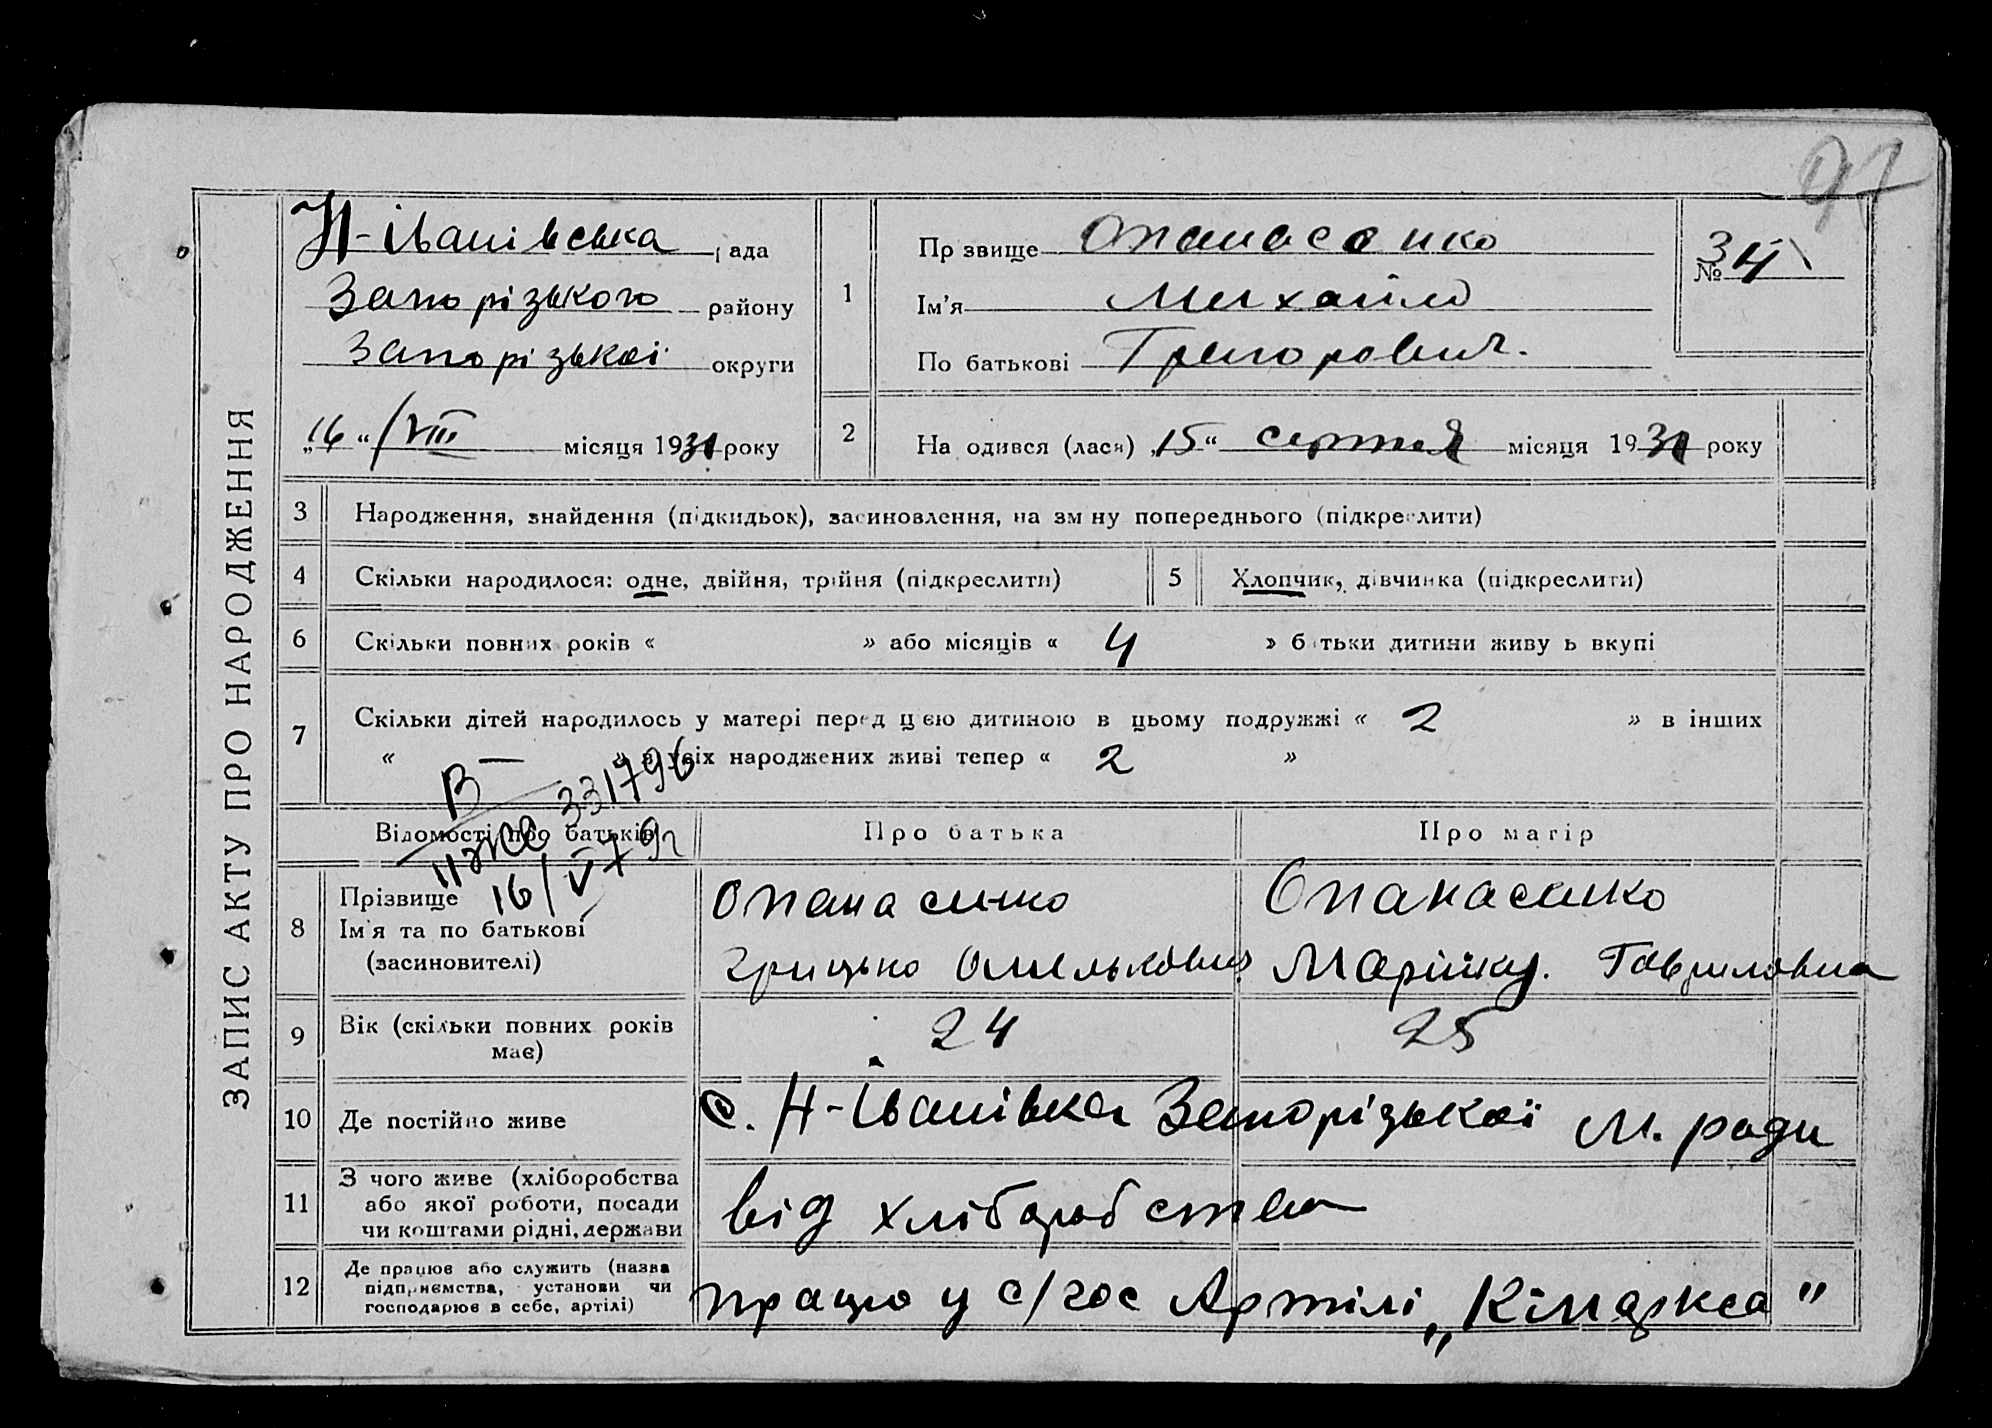 97
ЗАПИС АКТУ ПРО НАРОДЖЕННЯ
Н-Іванівська рада
Запорізького району
Запорізької округи
„16“ /VIII місяця 1931 року
1
Прізвище Опанасенко
Ім'я Михайло
По батькові Григорович.
№ 34
2
Народився (лася) „15“ серпня місяця 1931 року
3 Народження, знайдення (підкидьок), засиновлення, на зміну попереднього (підкреслити)
4 Скільки народилося: одне, двійня, трійня (підкреслити) 5 Хлопчик, дівчинка (підкреслити)
6 Скільки повних років « » або місяців « 4 » батьки дитини живуть вкупі
7 Скільки дітей народилось у матері перед цією дитиною в цьому подружжі « 2 » в інших
« — » з усіх народжених живі тепер « 2 »
В 331796
16/V 79г
Відомості про батьків Про батька Про матір
8 Прізвище
Ім'я та по батькові
(засиновителі)
Опанасенко
Грицько Омелькович
Опанасенко
Марійка. Гавриловна
9 Вік (скільки повних років має) 24 25
10 Де постійно живе с. Н-Іванівка Запорізької м. ради
11 З чого живе (хліборобства
або якої роботи, посади
чи коштами рідні, держави
від хліборобства
12 Де працює або служить (назва
підприємства, установи чи
господарює в себе, артілі)
працю у с/гос Артілі „Кімаркса"